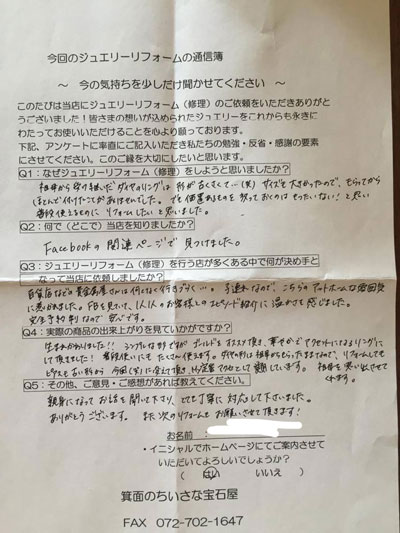 今回のジュエリーリフォームの通信簿
～ 今の気持ちを少しだけ聞かせてください ～
このたびは当店にジュエリーリフォーム（修理）のご依頼をいただきありがと
うございました！皆さまの想いが込められたジュエリーをこれからも永きに
わたってお使いいただけることを心より願っております。
下記、アンケートに率直にご記入いただき私たちの勉強・反省・感謝の要素
にさせてください。このご縁を大切にしたいと思います。
Q1：なぜジュエリーリフォーム（修理）をしようと思いましたか？
祖母から受け継いだダイヤのリングは形が古くさくて…(笑) サイズも大きかったので、もらってから
ほとんど付けたことがありませんでした。でも価値あるものを放っておくのはもったいない！と思い
普段使えるものにリフォームしたいと思いました。
Q2：何で（どこで）当店を知りましたか？
Facebookの関連ページで見つけました。
Q3：ジュエリーリフォーム（修理）を行う店が多くある中で何が決め手と
なって当店に依頼しましたか？
百貨店などでは貴金属屋さんは何となく行きづらく…。子連れなので、こちらのアットホームな雰囲気
に惹かれました。FBを見ていて、1人1人のお客様とのエピソード紹介に温かさを感じました。
完全予約制なので安心です。
Q4：実際の商品の出来上がりを見ていかがですか？
生まれかわりました!! シンプルな形ですがゴールドをオススメ頂き、華やかでアクセントになるリングに
して頂きました！普段使いにもたくさん使えます。
Q5：その他、ご意見・ご感想があれば教えてください。
親身になってお話を聞いて下さり、とても丁寧に対応して下さいました。
ありがとうございます。また次のリフォームもお願いさせて頂きます！
お名前：
・イニシャルでホームページにてご案内させて
いただいてよろしいでしょうか？
（ はい いいえ ）
箕面のちいさな宝石屋
FAX 072-702-1647